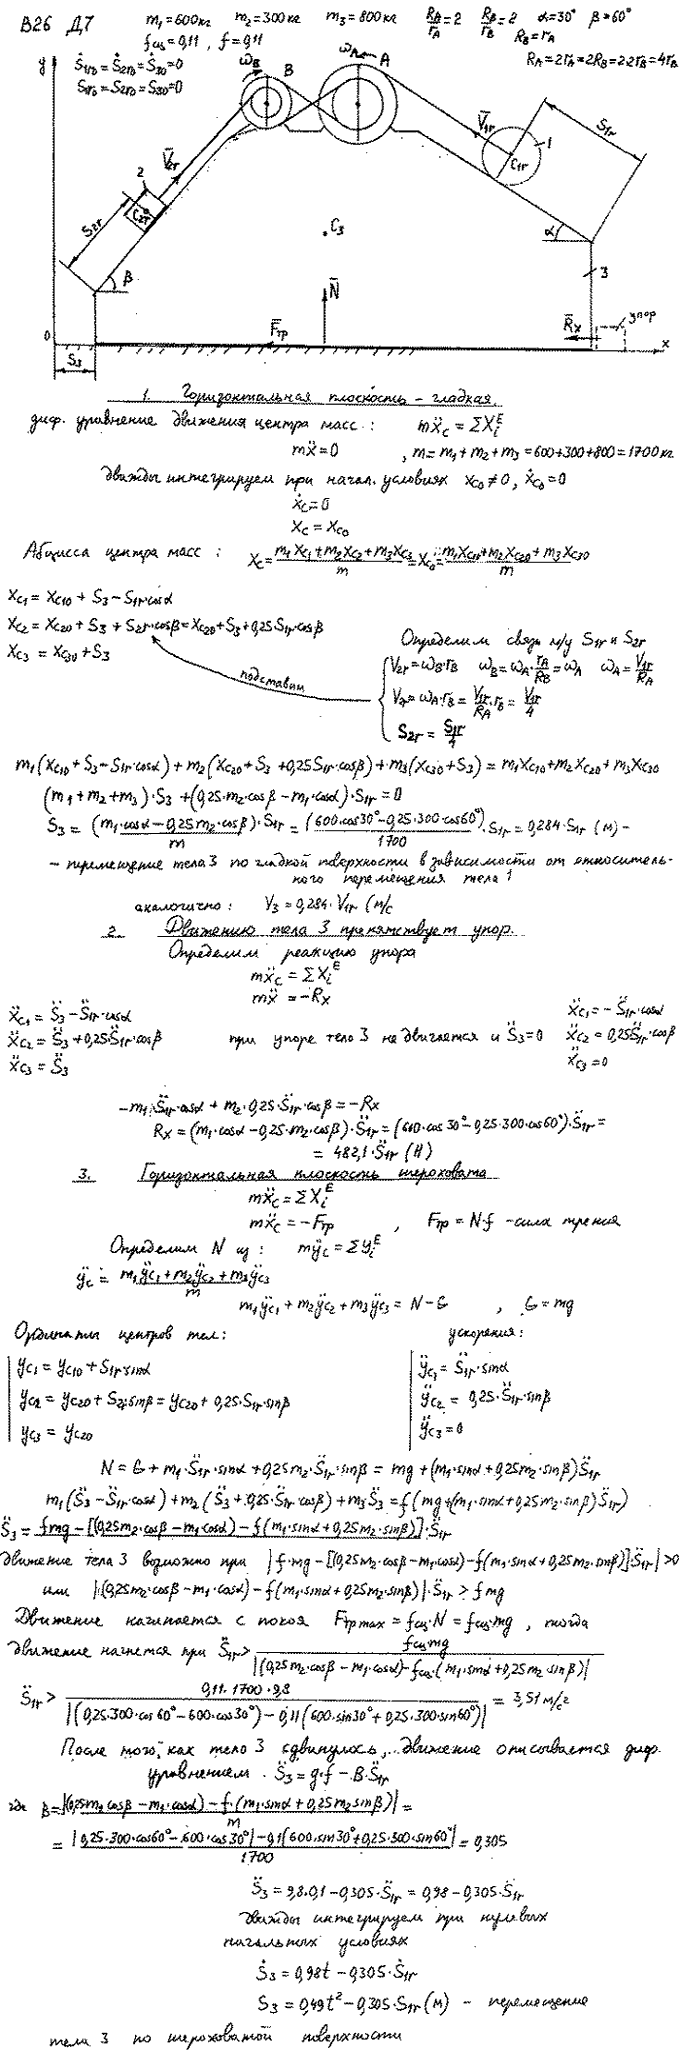 В26 Д7 m₁=600кг m₂=300кг m₃=800кг R_A/r_A=2 R_B/r_B=2 α=30° β=60°
f_сц=0,11, f=0,11 R_B=r_A
Ṡ₁r₀=Ṡ₂r₀=Ṡ₃₀=0 R_A=2r_A=2R_B=2·2r_B=4r_B
S₁r₀=S₂r₀=S₃₀=0
y ω_B B ω_A A
V̄₂r V̄₁r S₁r
2 C₂r S₂r C₁r 1
C₃ α
β N̄ 3
F̄тр R̄x упор
0 x
S₃
1. Горизонтальная плоскость – гладкая.
диф. уравнение движения центра масс: mẍ_C = ΣX_i^E
mẍ=0 , m=m₁+m₂+m₃=600+300+800=1700кг
дважды интегрируем при начал. условиях x_C0≠0, ẋ_C0=0
ẋ_C=0
x_C=x_C0
Абцисса центра масс: x_C=(m₁x_C1+m₂x_C2+m₃x_C3)/m=x_C0=(m₁x_C10+m₂x_C20+m₃x_C30)/m
x_C1=x_C10+S₃−S₁r·cosα
x_C2=x_C20+S₃+S₂r·cosβ=x_C20+S₃+0,25S₁r·cosβ
x_C3=x_C30+S₃
Определим связь м/у S₁r и S₂r
подставим
V₂r=ω_B·r_B ω_B=ω_A·r_A/R_B=ω_A ω_A=V₁r/R_A
V₂r=ω_A·r_B=V₁r/R_A·r_B=V₁r/4
S₂r=S₁r/4
m₁(x_C10+S₃−S₁r·cosα)+m₂(x_C20+S₃+0,25S₁r·cosβ)+m₃(x_C30+S₃)=m₁x_C10+m₂x_C20+m₃x_C30
(m₁+m₂+m₃)·S₃+(0,25·m₂·cosβ−m₁·cosα)·S₁r=0
S₃=(m₁·cosα−0,25m₂·cosβ)/m·S₁r=(600·cos30°−0,25·300·cos60°)/1700·S₁r=0,284·S₁r (м) –
– перемещение тела 3 по гладкой поверхности в зависимости от относитель-
ного перемещения тела 1
аналогично: V₃=0,284·V₁r (м/с
2. Движению тела 3 препятствует упор.
Определим реакцию упора
mẍ_C=ΣX_i^E
mẍ=−Rx
ẍ_C1=S̈₃−S̈₁r·cosα ẍ_C1=−S̈₁r·cosα
ẍ_C2=S̈₃+0,25·S̈₁r·cosβ при упоре тело 3 не двигается и S̈₃=0 ẍ_C2=0,25S̈₁r·cosβ
ẍ_C3=S̈₃ ẍ_C3=0
−m₁·S̈₁r·cosα+m₂·0,25·S̈₁r·cosβ=−Rx
Rx=(m₁·cosα−0,25·m₂·cosβ)·S̈₁r=(600·cos30°−0,25·300·cos60°)·S̈₁r=
=482,1·S̈₁r (Н)
3. Горизонтальная плоскость шероховата
mẍ_C=ΣX_i^E
mẍ_C=−Fтр , Fтр=N·f – сила трения
Определим N из: mÿ_C=ΣY_i^E
ÿ_C=(m₁ÿ_C1+m₂ÿ_C2+m₃ÿ_C3)/m
m₁ÿ_C1+m₂ÿ_C2+m₃ÿ_C3=N−G , G=mg
Ординаты центров тел: ускорения:
y_C1=y_C10+S₁r·sinα ÿ_C1=S̈₁r·sinα
y_C2=y_C20+S₂r·sinβ=y_C20+0,25·S₁r·sinβ ÿ_C2=0,25·S̈₁r·sinβ
y_C3=y_C20 ÿ_C3=0
N=G+m₁·S̈₁r·sinα+0,25m₂·S̈₁r·sinβ=mg+(m₁·sinα+0,25m₂·sinβ)S̈₁r
m₁(S̈₃−S̈₁r·cosα)+m₂(S̈₃+0,25·S̈₁r·cosβ)+m₃S̈₃=f(mg+(m₁·sinα+0,25m₂·sinβ)S̈₁r)
S̈₃=fmg−[(0,25m₂·cosβ−m₁·cosα)−f(m₁·sinα+0,25m₂·sinβ)]·S̈₁r
движение тела 3 возможно при |f·mg−[(0,25m₂·cosβ−m₁·cosα)−f(m₁·sinα+0,25m₂·sinβ)]·S̈₁r|>0
или |(0,25m₂·cosβ−m₁·cosα)−f(m₁·sinα+0,25m₂·sinβ)|·S̈₁r>fmg
Движение начинается с покоя Fтр max=f_сц·N=f_сц·mg, тогда
движение начнется при S̈₁r>f_сц·mg/|(0,25m₂·cosβ−m₁·cosα)−f_сц·(m₁·sinα+0,25m₂·sinβ)|
S̈₁r>0,11·1700·9,8/|(0,25·300·cos60°−600·cos30°)−0,11(600·sin30°+0,25·300·sin60°)|=3,51м/с²
После того, как тело 3 сдвинулось, движение описывается диф.
уравнением S̈₃=g·f−B·S̈₁r
где B=|(0,25m₂cosβ−m₁·cosα)−f·(m₁·sinα+0,25m₂sinβ)|/m=
=|0,25·300·cos60°−600·cos30°|−0,1(600·sin30°+0,25·300·sin60°|/1700=0,305
S̈₃=9,8·0,1−0,305·S̈₁r=0,98−0,305·S̈₁r
дважды интегрируем при нулевых
начальных условиях
Ṡ₃=0,98t−0,305·Ṡ₁r
S₃=0,49t²−0,305·S₁r (м) – перемещение
тела 3 по шероховатой поверхности